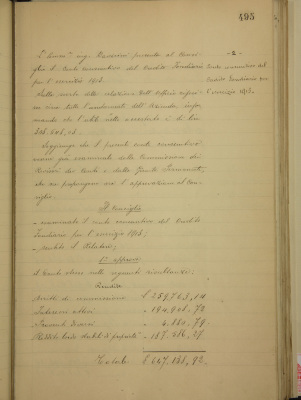 495
- 2 -
L'Onor. ing. presenta al Consi-
glio il Conto consuntivo del Credito Fondiario
per l'esercizio 1913.
Conto consuntivo del
Credito Fondiario per
l'esercizio 1913.
Dalla scorta della relazione dell'ufficio
tutto l'andamento dell'Azienda,
mando che l'utile netto è di lire
Soggiunge che il presente conto consuntivo
venne già esaminato dalla Commissione dei
Revisori dei Conti e dalla Giunta Permanente,
che ne propongono ora l'approvazione al Con-
siglio.
Il Consiglio
- esaminato il conto consuntivo del Credito
Fondiario per l'esercizio 1913;
- sentito il Relatore;
approva
il Conto stesso nelle seguenti risultanze:
Rendite
Diritti di commissione £ 259,763,14
Interessi attivi " 194,908,72
Proventi diversi " 4.880,79
" 187.616,27
Totale £ 647.168,92.